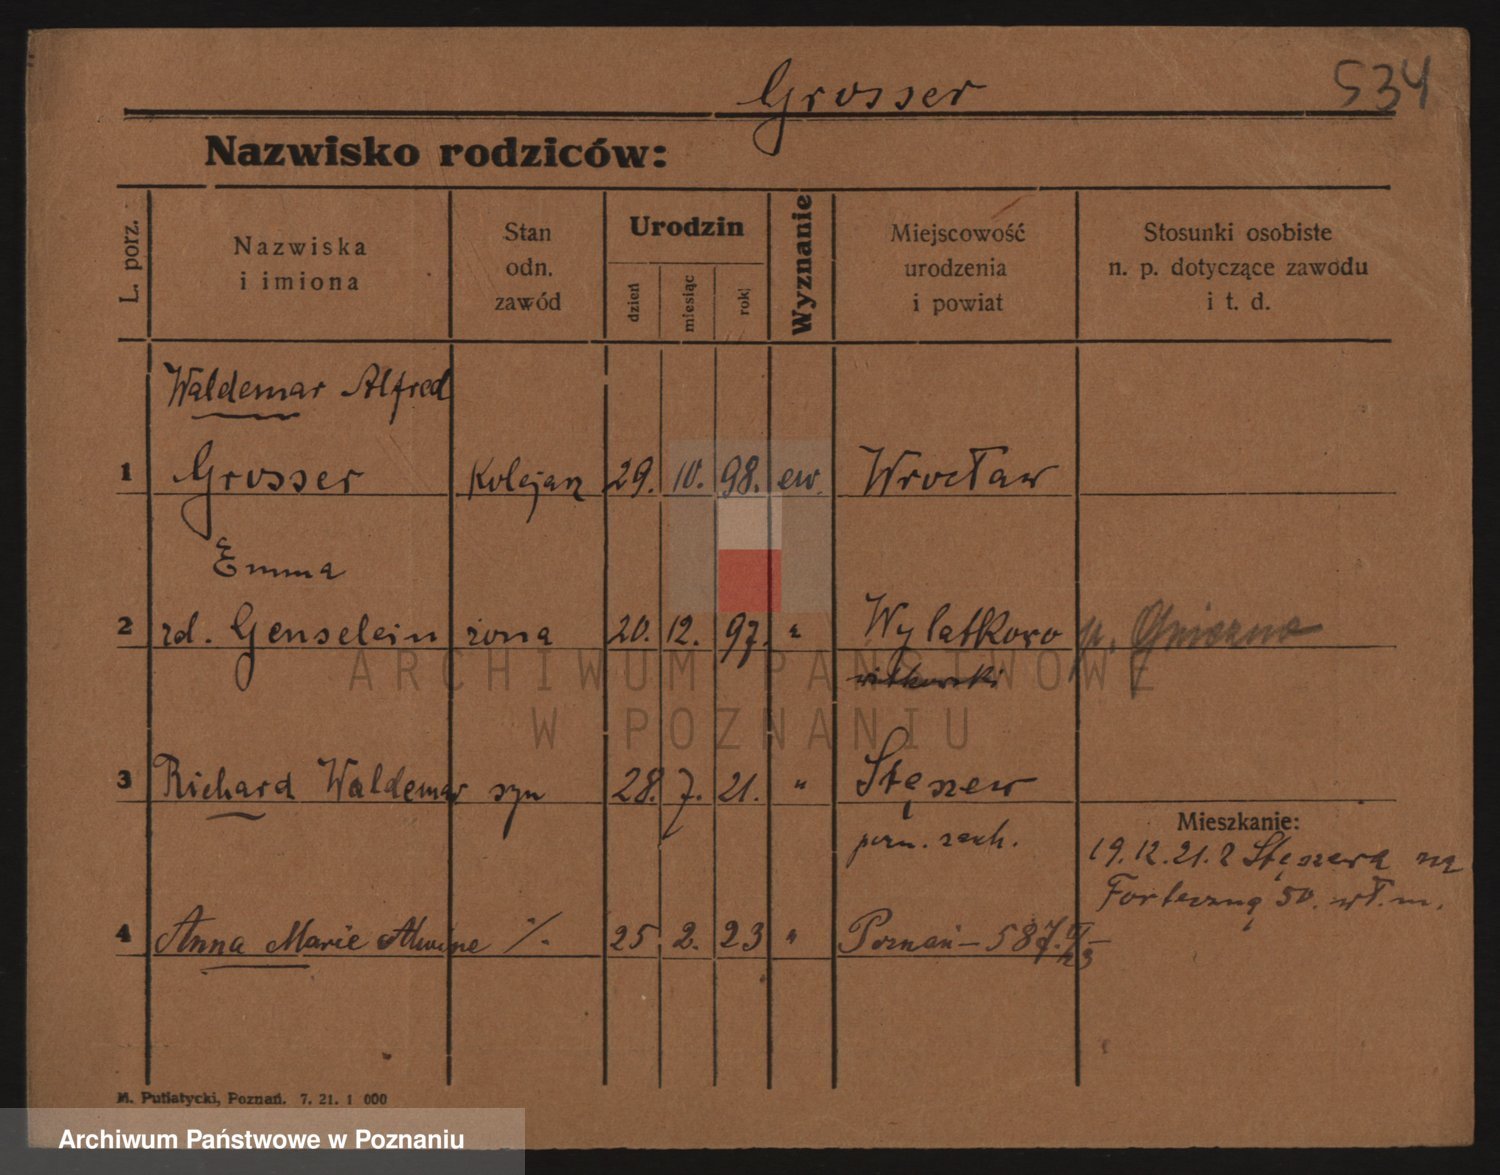 Grosser
534
Nazwisko rodziców:
L. porz.
Nazwiska
i imiona
Stan
odn.
zawód
Urodzin
dzień
miesiąc
rok
Wyznanie
Miejscowość
urodzenia
i powiat
Stosunki osobiste
n. p. dotyczące zawodu
i t. d.
Waldemar Alfred
1 Grosser Kolejarz 29. 10. 98. ew. Wrocław
Emma
2 zd. Genselein żona 20. 12. 97. " Wylatkowo p. Gniezno
witkowski
3 Richard Waldemar syn 28. 7. 21. " Stęszew
pozn. zach.
Mieszkanie:
19.12.21. z Stęszewa na
Forteczną 50. wł. m.
4 Anna Marie Alwine %. 25. 2. 23 " Poznań – 587.
ARCHIWUM PAŃSTWOWE
W POZNANIU
M. Putiatycki, Poznań. 7. 21. 1 000
Archiwum Państwowe w Poznaniu